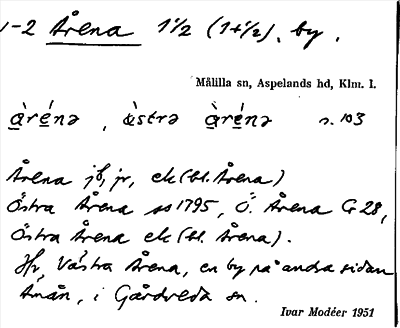 1-2 Årena 1 1/2 (1+1/2), by.
Målilla sn, Aspelands hd, Klm. l.
àrénə, àstrə àrénə s. 103
Årena jb, jr, ek (bl. Årena)
Östra Årena ss 1795, Ö. Årena Gr 28,
Östra Årena ek (bl. Årena).
Jfr, Västra Årena, en by på andra sidan
Åmån, i Gårdveda sn.
Ivar Modéer 1951